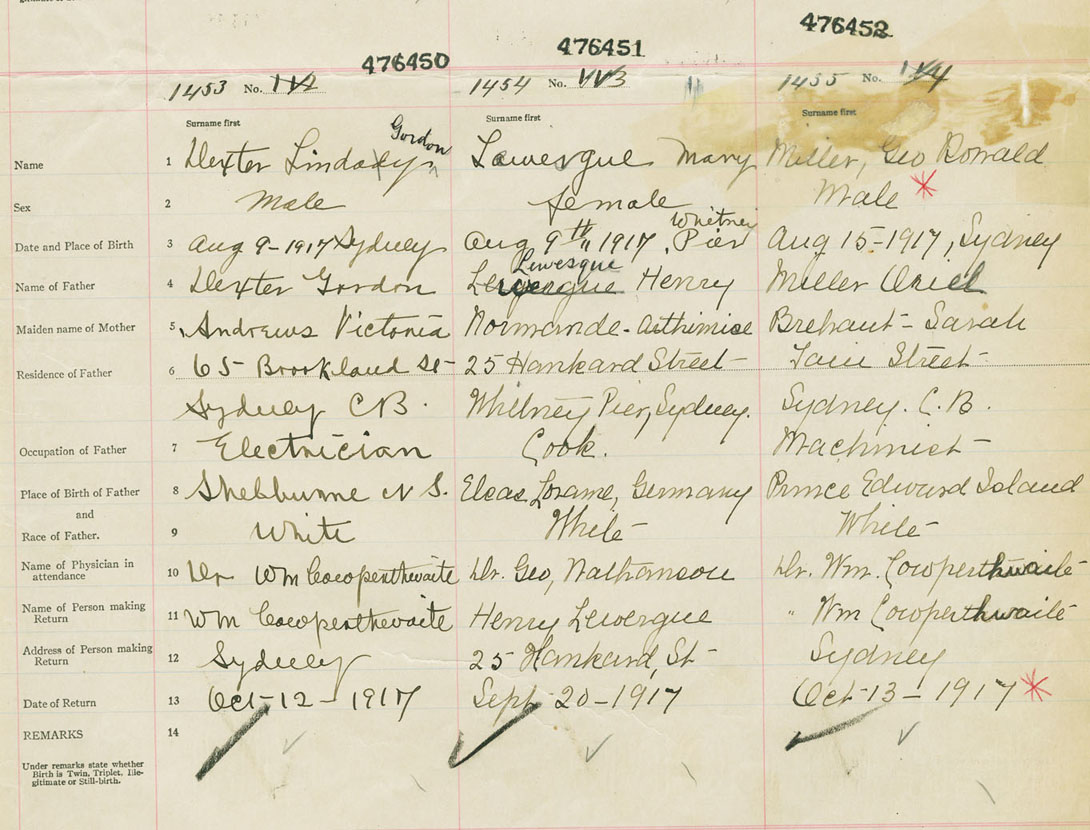 gitimate or Still-birth.
476450 476451 476452
1453 No. 1454 No. VV3 1455 No.
Surname first Surname first Surname first
Gordon
Name 1 Dexter Lindsey Lewesgue Mary Miller, Geo Ronald
Sex 2 Male female Male *
Whitney
Date and Place of Birth 3 Aug 9-1917 Sydney Aug 9th, 1917, Pier Aug 15-1917, Sydney
Lewesque
Name of Father 4 Dexter Gordon Lewergue Henry Miller Uriel
Maiden name of Mother 5 Andrews Victoria Normande - Brehaut - Sarah
Residence of Father 6 65 Brookland St- 25 Hankard Street Street
Sydney C B. Whitney Pier, Sydney. Sydney. C. B.
Occupation of Father 7 Electrician Cook. Machinist
Place of Birth of Father 8 Shelburne N S. Elsas Loraine, Germany Prince Edward Island
and
Race of Father. 9 White White White
Name of Physician in
attendance 10 Dr Wm Cowperthwaite Dr. Geo, Nathanson Dr. Wm. Cowperthwaite
Name of Person making
Return 11 Wm Cowperthwaite Henry Lewergue " Wm Cowperthwaite
Address of Person making
Return 12 Sydney 25 Hankard, St- Sydney
Date of Return 13 Oct-12-1917 Sept 20-1917 Oct-13-1917 *
REMARKS 14
Under remarks state whether
Birth is Twin, Triplet, Ille-
gitimate or Still-birth.